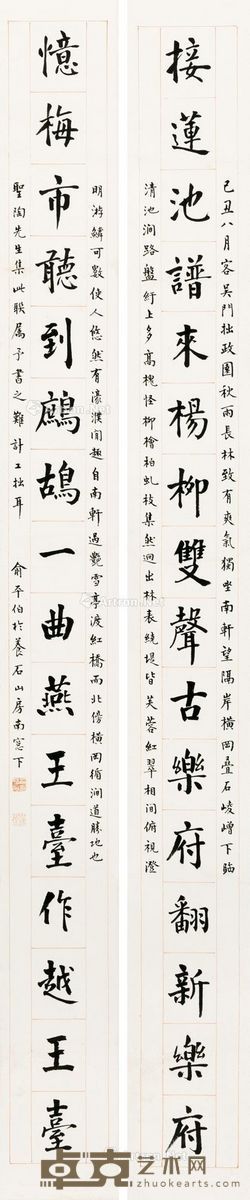 己丑八月客吳門拙政園秋雨長林致有爽氣獨坐南軒望隔岸橫岡疊石崚嶒下臨
接蓮池譜來楊柳雙聲古樂府翻新樂府
清池澗路盤紆上多高槐怪柳檜柏虬枝集然迥出林表繞堤皆芙蓉紅翠相間俯視澄
明游鱗可數使人悠然有濠濮間趣自南軒過艷雪亭渡紅橋而北傍橫岡循澗道勝地也
憶梅市聽到鷓鴣一曲燕王臺作越王臺
聖陶先生集此聯属予書之難計工拙耳 俞平伯於養石山房南窓下
卓克艺术网
www.zhuokearts.com